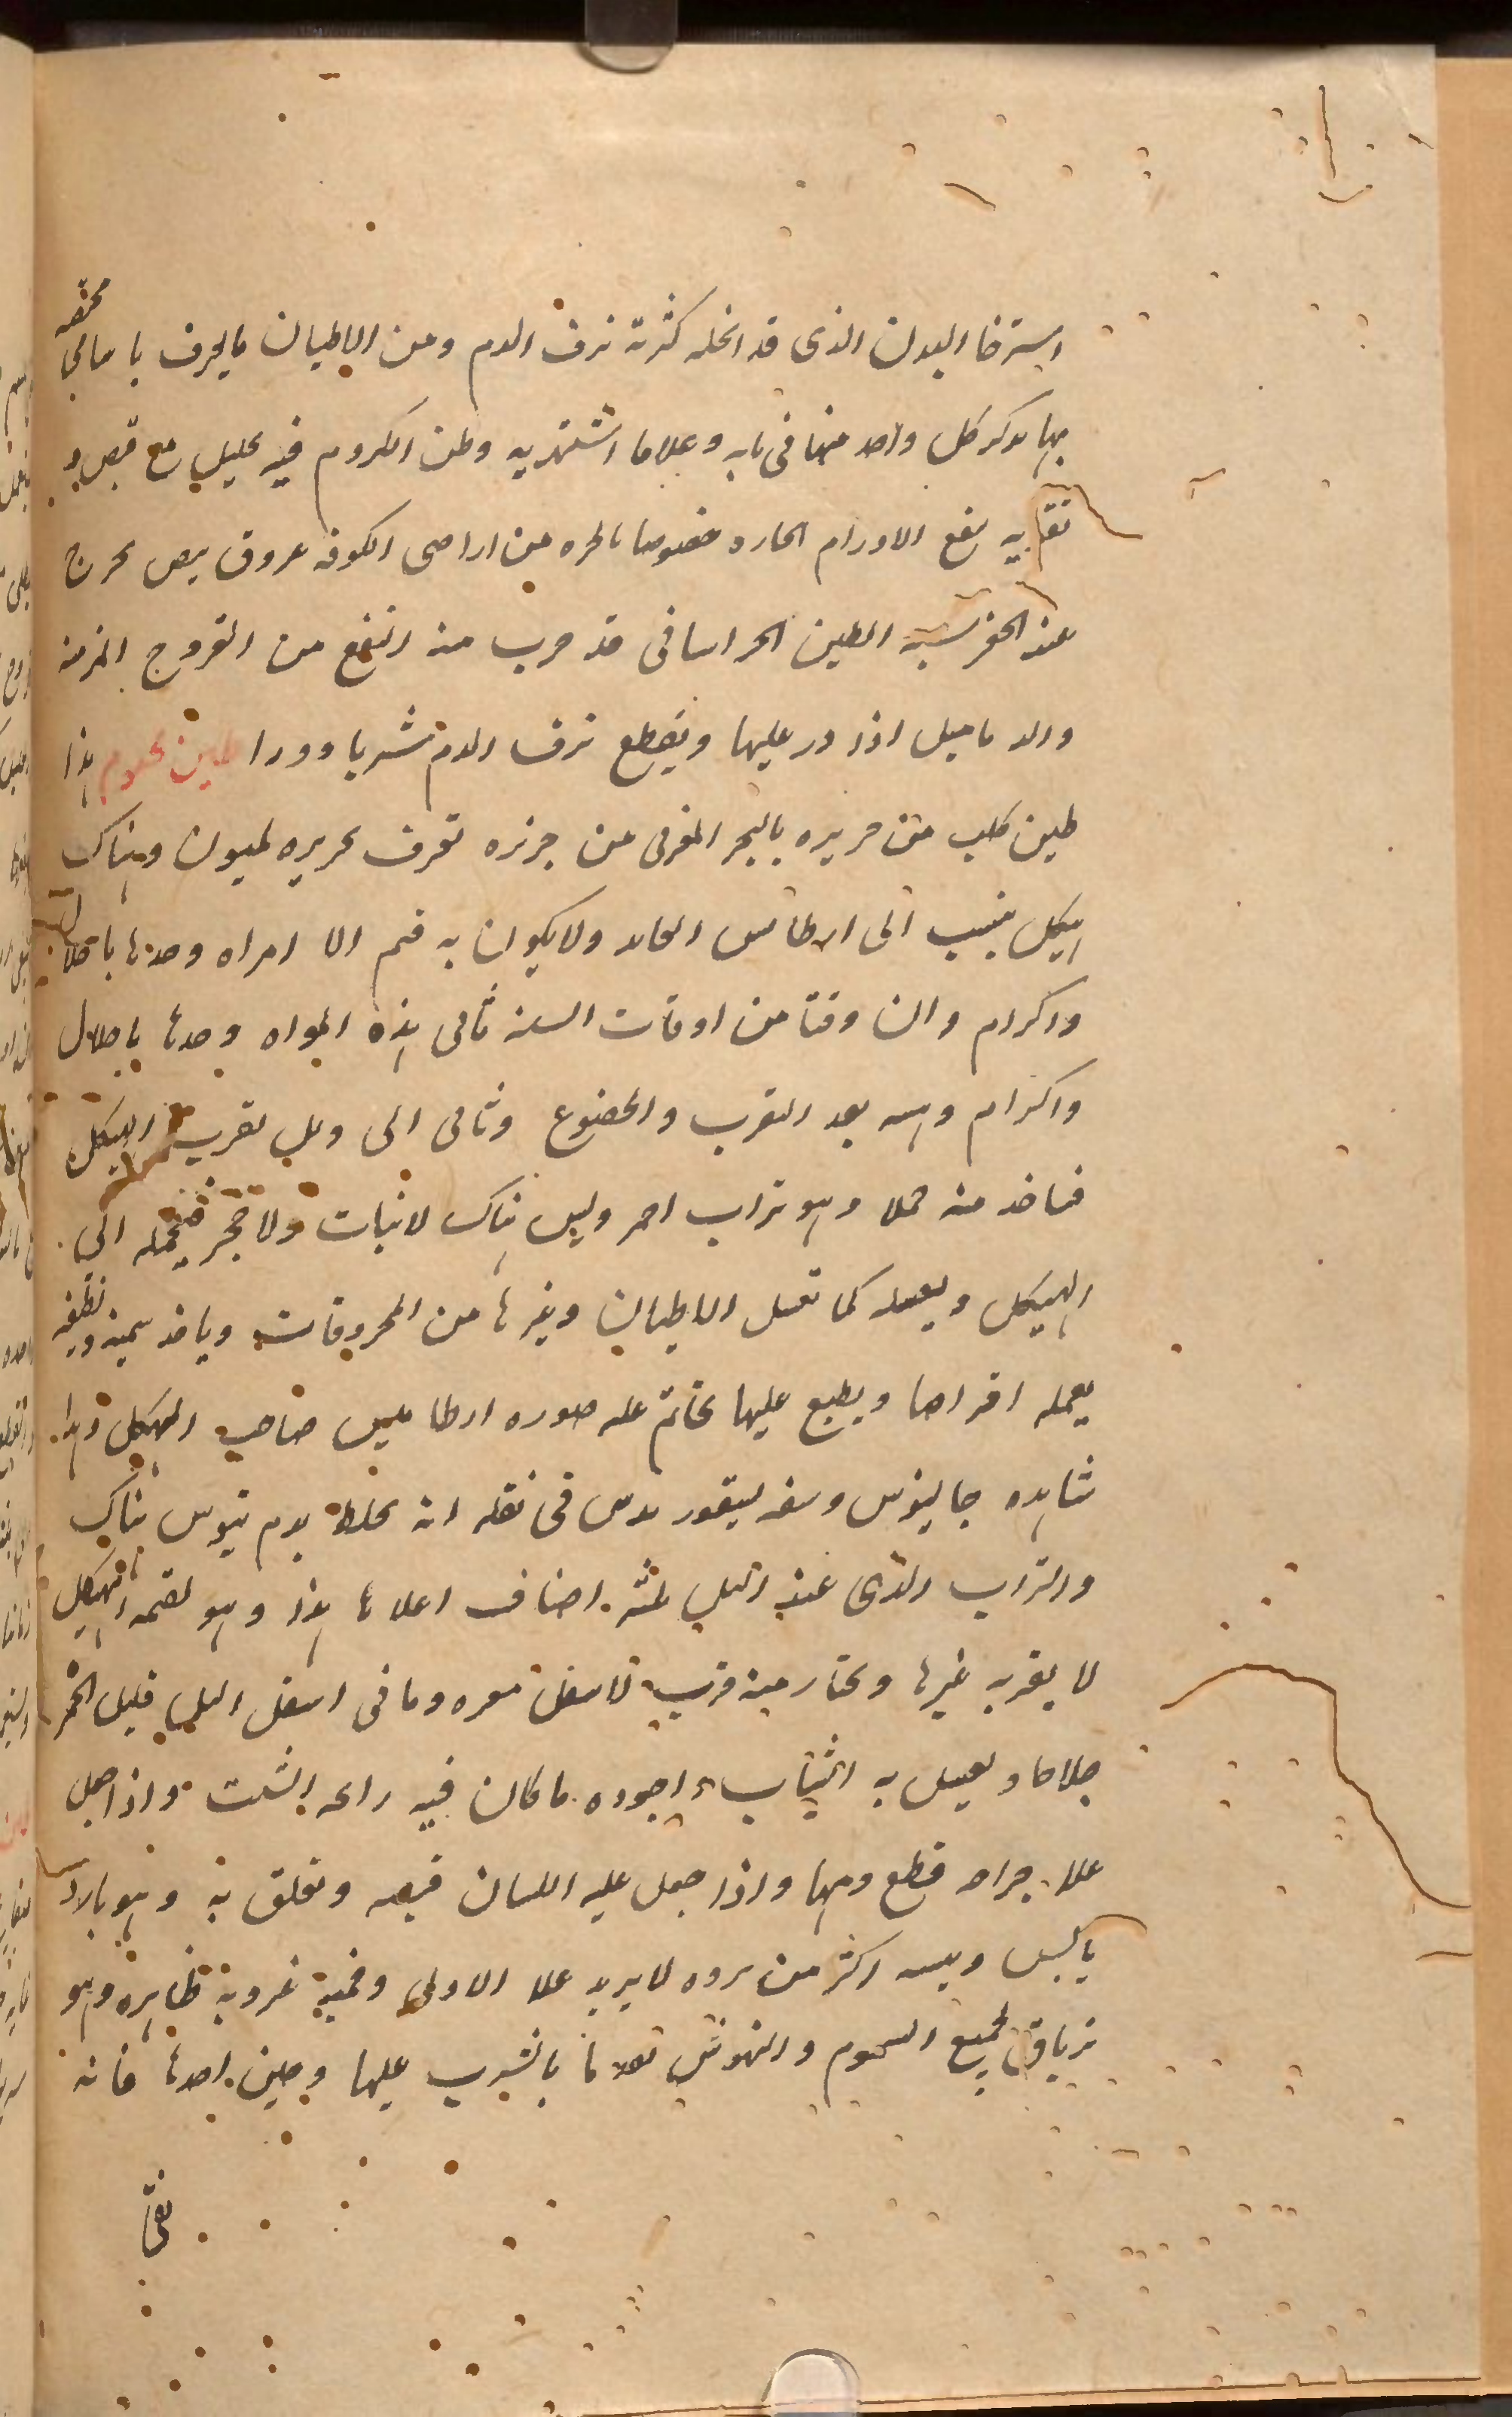 استرخا البدن الذى قد انحله كثرة نزف الدم ومن الاطيان مايعرف باسامى مختصه
بها بدكر كل واحد منها فى بابه وعلاما اشتهر به وطين الكروم فيه تحليل مع قبض و
تقويه ينفع الاورام الحاره خصوصا بالحره من اراضى الكوفه عروق بيض تخرج
عند الحفر الطين الخراسانى قد جرب منه انتفع من القروح المزمنه
والدماميل اذا در عليها ويقطع نزف الدم شربا ودرا طين مختوم هذا
طين جلب من جزيره بالبحر المغربى من جزيره تعرف بجزيره لميون وهناك
هيكل ينسب الى ارطامس ولا يكون به قيم الا امراه وحدها باجلال
واكرام وان وقتا من اوقات السنه تاتى هذه المراه وحدها باجلال
واكرام بعد التقرب والخضوع وتاتى الى وتل بقرب الهيكل
فتاخذ منه حملا وهو تراب احمر وليس هناك لانبات ولا حجر فتحمله الى
الهيكل ويغسله كما تغسل الاطيان وغيرها من المحروقات وياخذ سمينه ونظيفه
يعمله اقراصا ويطبع عليها بخاتم عليه صوره ارطاميس صاحب الهيكل وهذا
شاهده جالينوس وديسقوريدوس فى نقله انه يخلط بدم تيوس هناك
والتراب الذى عند التل ثلثه اصناف اعلاها هذا وهو لقيمه الهيكل
لا يقربه غيرها ويختار منه قريب لاسفل وما فى اسفل التل قليل الحمره
جلاها ويغسل به الثياب واجوده ما كان فيه رائحه الشبت واذا جعل
علا جراحه قطع دمها واذا جعل عليه اللسان قبضه وتعلق به وهو بارد
يابس ويبسه اكثر من برده لا يزيد علا الاولى وفيه غرويه ظاهره وهو
ترياق لجميع السموم والنهوش بالشرب عليها وحين اخذها فانه
نقى